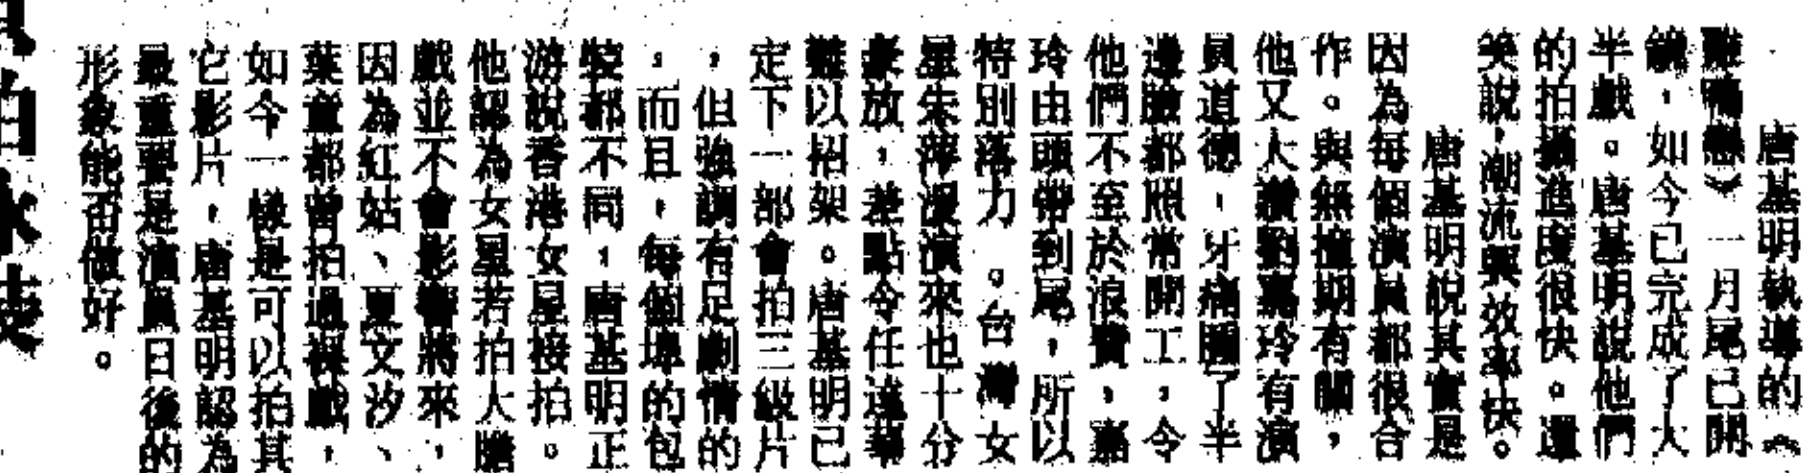 唐基明執導的《
難鴨戀》一月尾已開
鏡，如今已完成了大
半戲。唐基明說他們
的拍攝進度很快。還
笑說，潮流興效率快。
唐基明說其實是
因為每個演員都很合
作。與無撞期有關，
他又大讚劉嘉玲有演
員道德，牙痛腫了半
邊臉都照常開工，令
他們不至於浪費，嘉
玲由頭帶到尾，所以
特別落力。台灣女
星朱萍漫演來也十分
豪放，差點令任達華
難以招架。唐基明已
定下一部會拍三級片
，但強調有足劇情的
，而且，每個埠的包
裝都不同，唐基明正
游說香港女星接拍。
他認為女星若拍大膽
戲並不會影響將來，
因為紅姑、夏文汐、
葉童都曾拍過裸戲，
如今一樣是可以拍其
它影片，唐基明認為
最重要是演員日後的
形象能否做好。